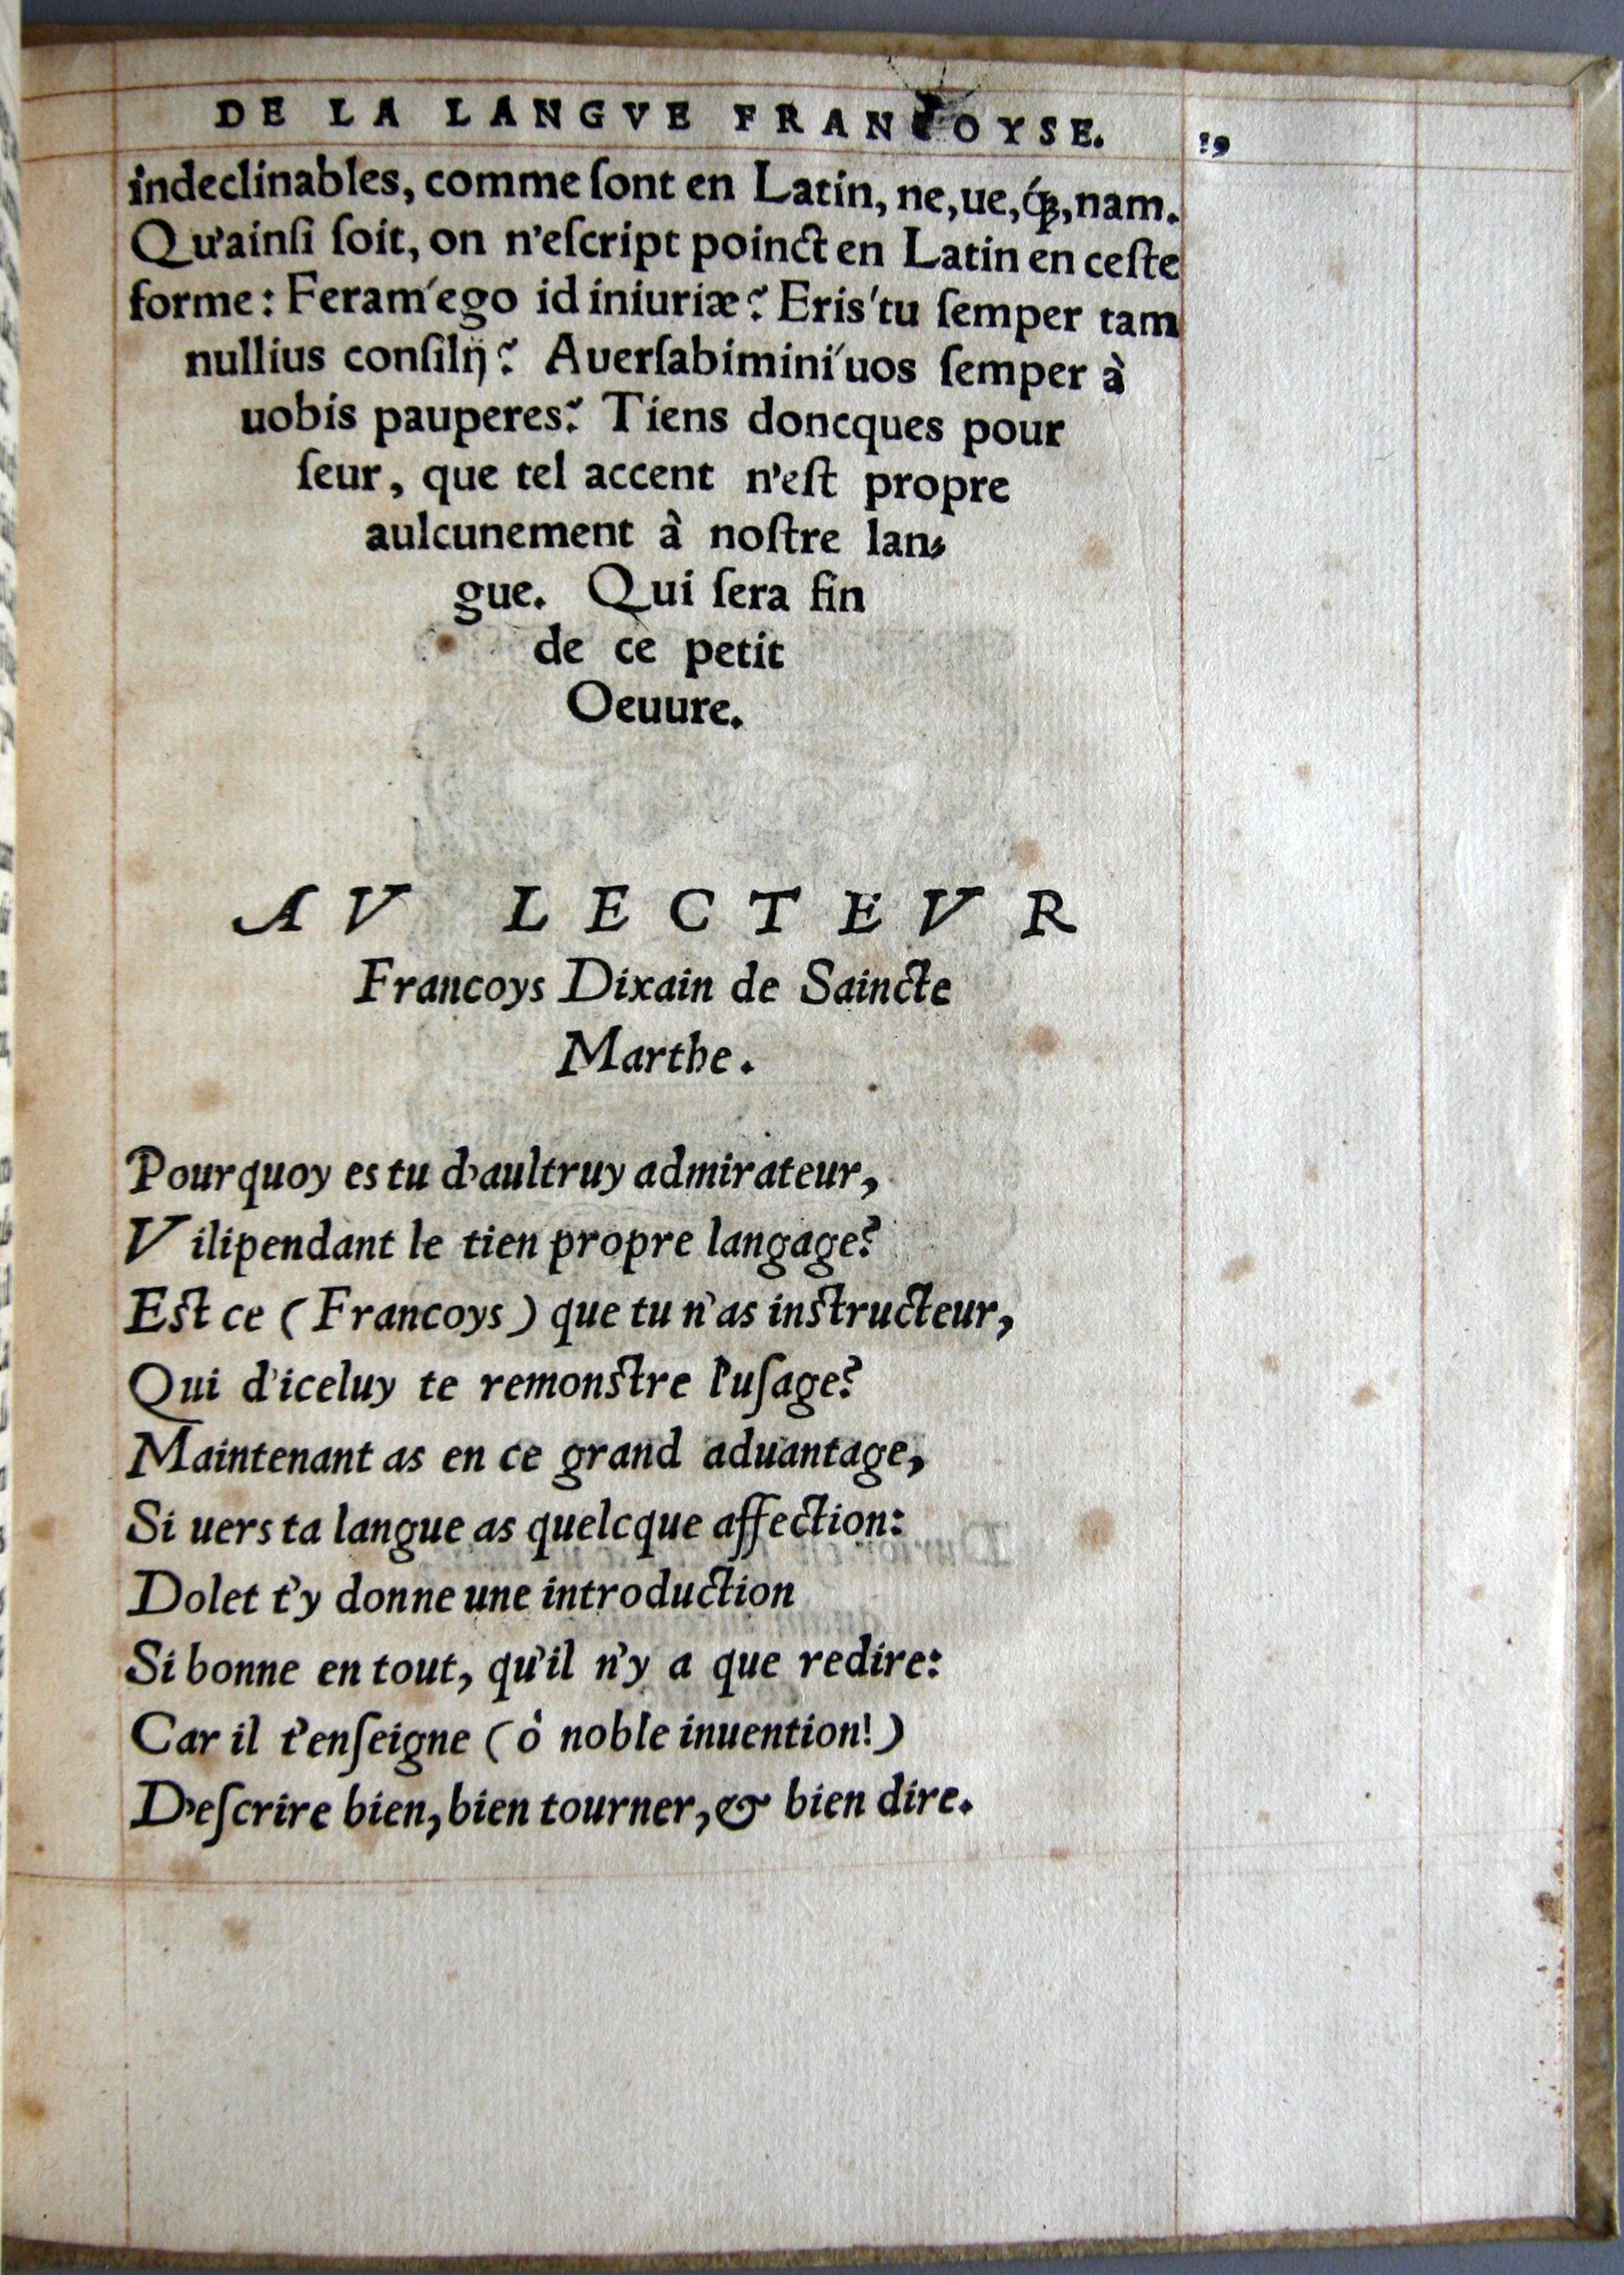 DE LA LANGVE FRANCOYSE. 39
indeclinables, comme ſont en Latin, ne, ue, q́ꝫ, nam.
Qu'ainſi ſoit, on n'eſcript poinct en Latin en ceſte
forme: Feram'ego id iniuriæ? Eris'tu ſemper tam
nullius conſilij? Auerſabimini'uos ſemper à
uobis pauperes? Tiens doncques pour
ſeur, que tel accent n'eſt propre
aulcunement à noſtre lan-
gue. Qui ſera fin
de ce petit
Oeuure.
AV LECTEVR
Francoys Dixain de Saincte
Marthe.
Pourquoy es tu d'aultruy admirateur,
Vilipendant le tien propre langage?
Eſt ce (Francoys) que tu n'as inſtructeur,
Qui d'iceluy te remonſtre l'uſage?
Maintenant as en ce grand aduantage,
Si uers ta langue as quelcque affection:
Dolet t'y donne une introduction
Si bonne en tout, qu'il n'y a que redire:
Car il t'enſeigne (ò noble inuention!)
D'eſcrire bien, bien tourner, & bien dire.